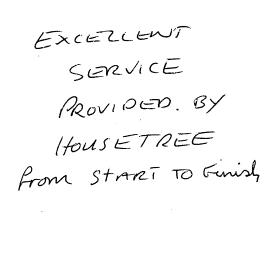 EXCELLENT
SERVICE
PROVIDED. BY
HOUSETREE
From START TO Finish